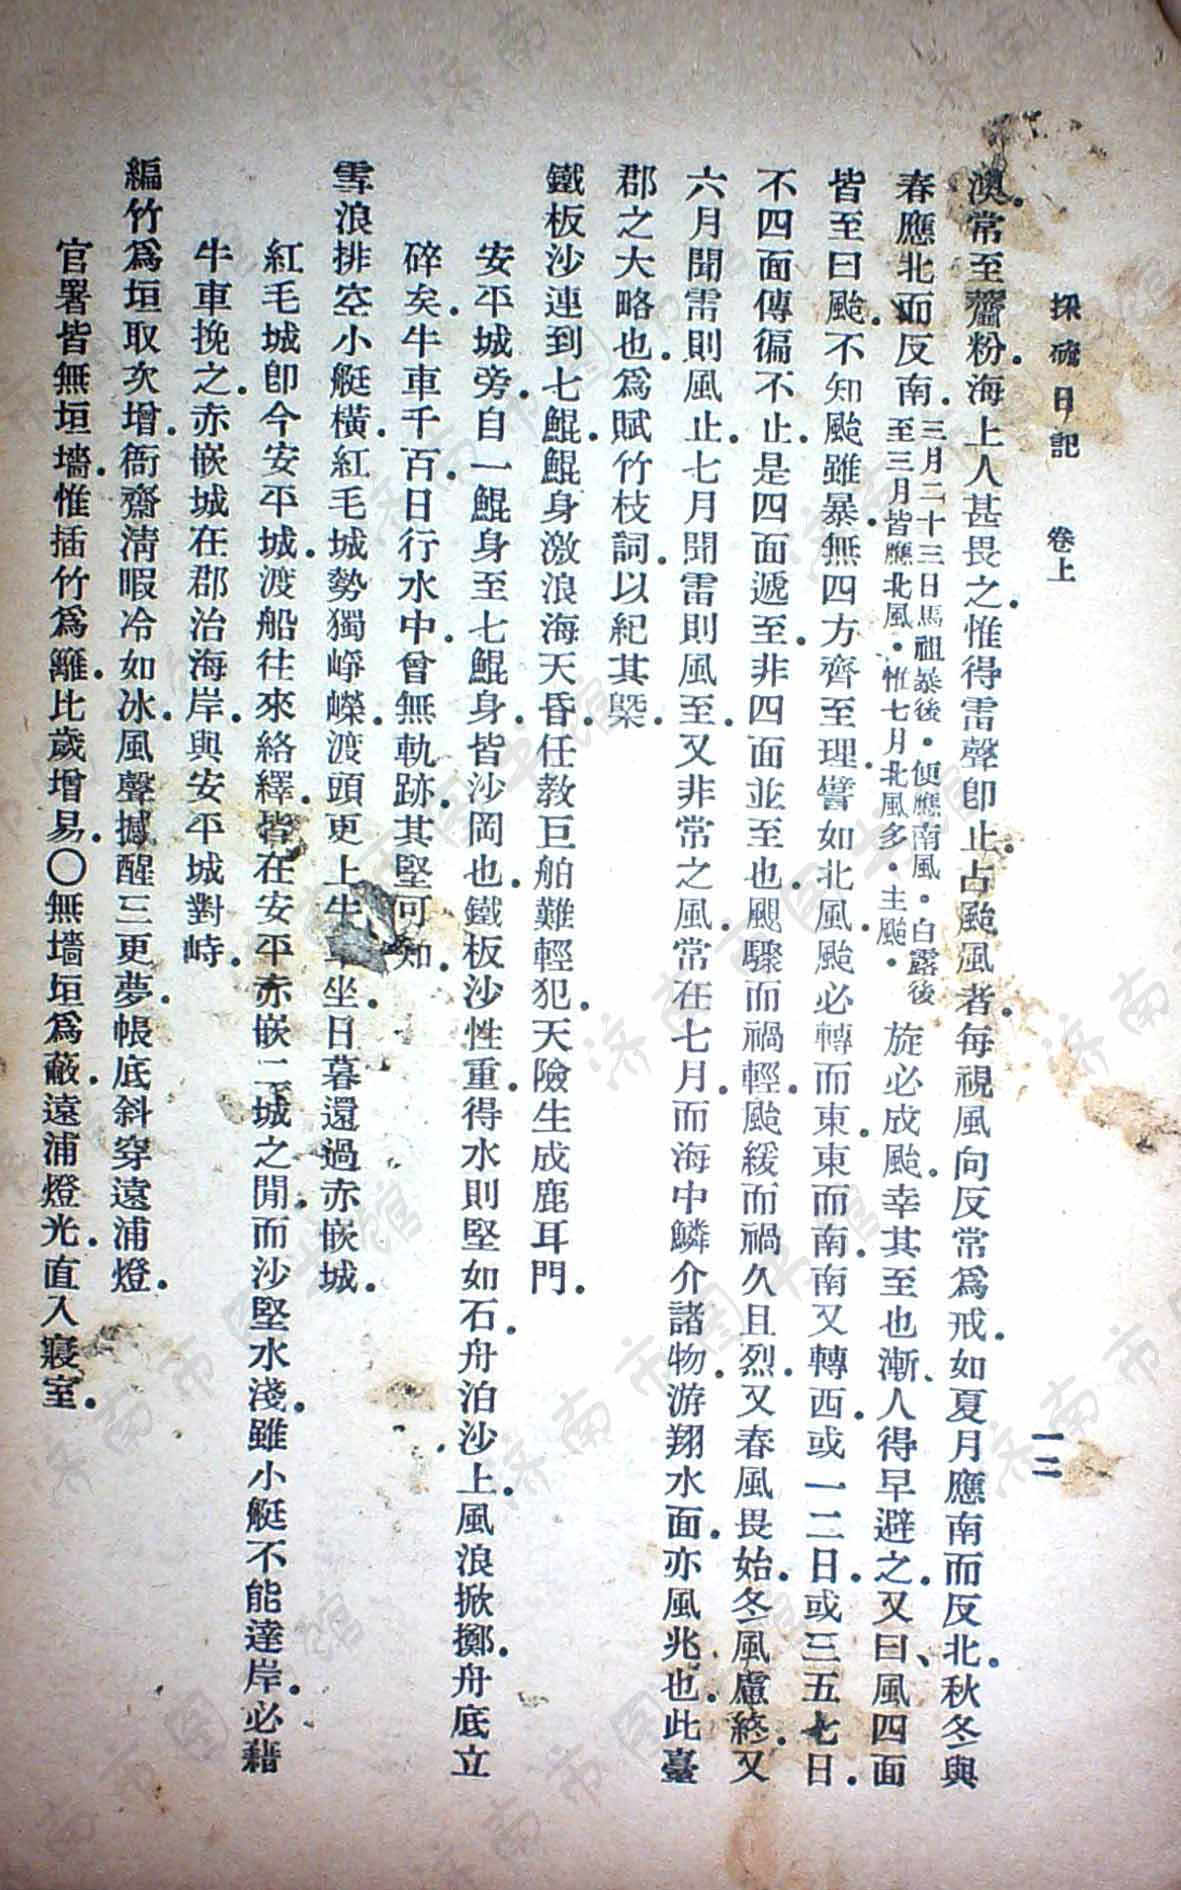 採硫日記 卷上 一二
澳。常至虀粉。海上人甚畏之。惟得雷聲卽止。占颱風者。每視風向反常爲戒。如夏月應南而反北。秋冬與
春應北而反南。三月二十三日馬祖暴後。便應南風。白露後至三月皆應北風。惟七月北風多。主颱。旋必成颱。幸其至也漸、人得早避之。又曰、風四面
皆至曰颱。不知颱雖暴。無四方齊至理。譬如北風颱必轉而東。東而南。南又轉西。或一二日。或三五七日。
不四面傳徧不止。是四面遞至。非四面並至也。颶驟而禍輕。颱緩而禍久且烈。又春風畏始。冬風慮終。又
六月聞雷則風止。七月聞雷則風至。又非常之風。常在七月。而海中鱗介諸物。游翔水面。亦風兆也。此臺
郡之大略也。爲賦竹枝詞。以紀其槩。
鐵板沙連到七鯤。鯤身激浪海天昏。任教巨舶難輕犯。天險生成鹿耳門。
安平城旁。自一鯤身至七鯤身。皆沙岡也。鐵板沙性重。得水則堅如石。舟泊沙上。風浪掀擲。舟底立
碎矣。牛車千百。日行水中。曾無軌跡。其堅可知。
雪浪排空小艇橫。紅毛城勢獨崢嶸。渡頭更上牛車坐。日暮還過赤嵌城。
紅毛城卽今安平城。渡船往來絡繹。皆在安平赤嵌二城之閒。而沙堅水淺。雖小艇不能達岸。必藉
牛車挽之。赤嵌城在郡治海岸。與安平城對峙。
編竹爲垣取次增。衙齋淸暇冷如冰。風聲撼醒三更夢。帳底斜穿遠浦燈。
官署皆無垣墻。惟插竹爲籬。比歲增易。〇無墻垣爲蔽。遠浦燈光。直入寢室。